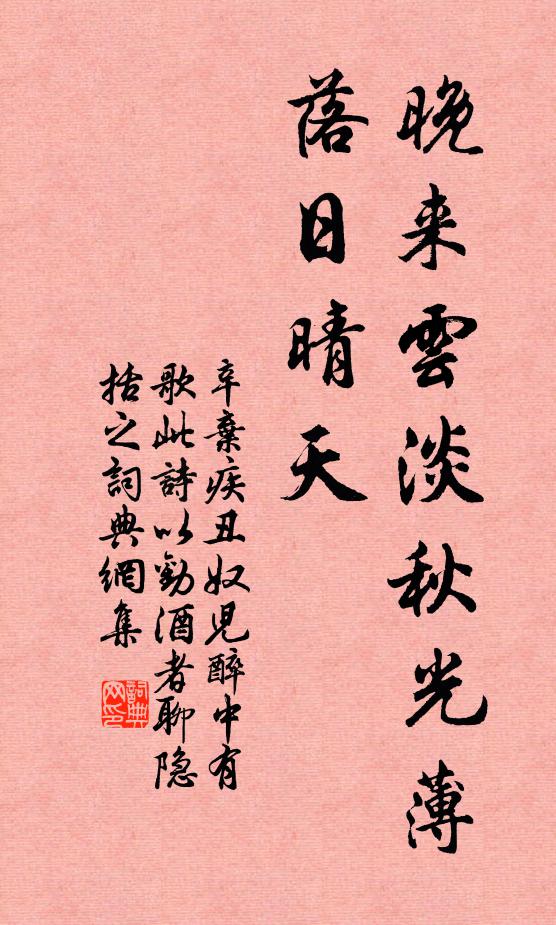 晚来雲淡秋光薄
落日晴天
辛棄疾丑奴児醉中有
歌此詩以勸酒者聊隐
括之詞典網集
詞典
网印